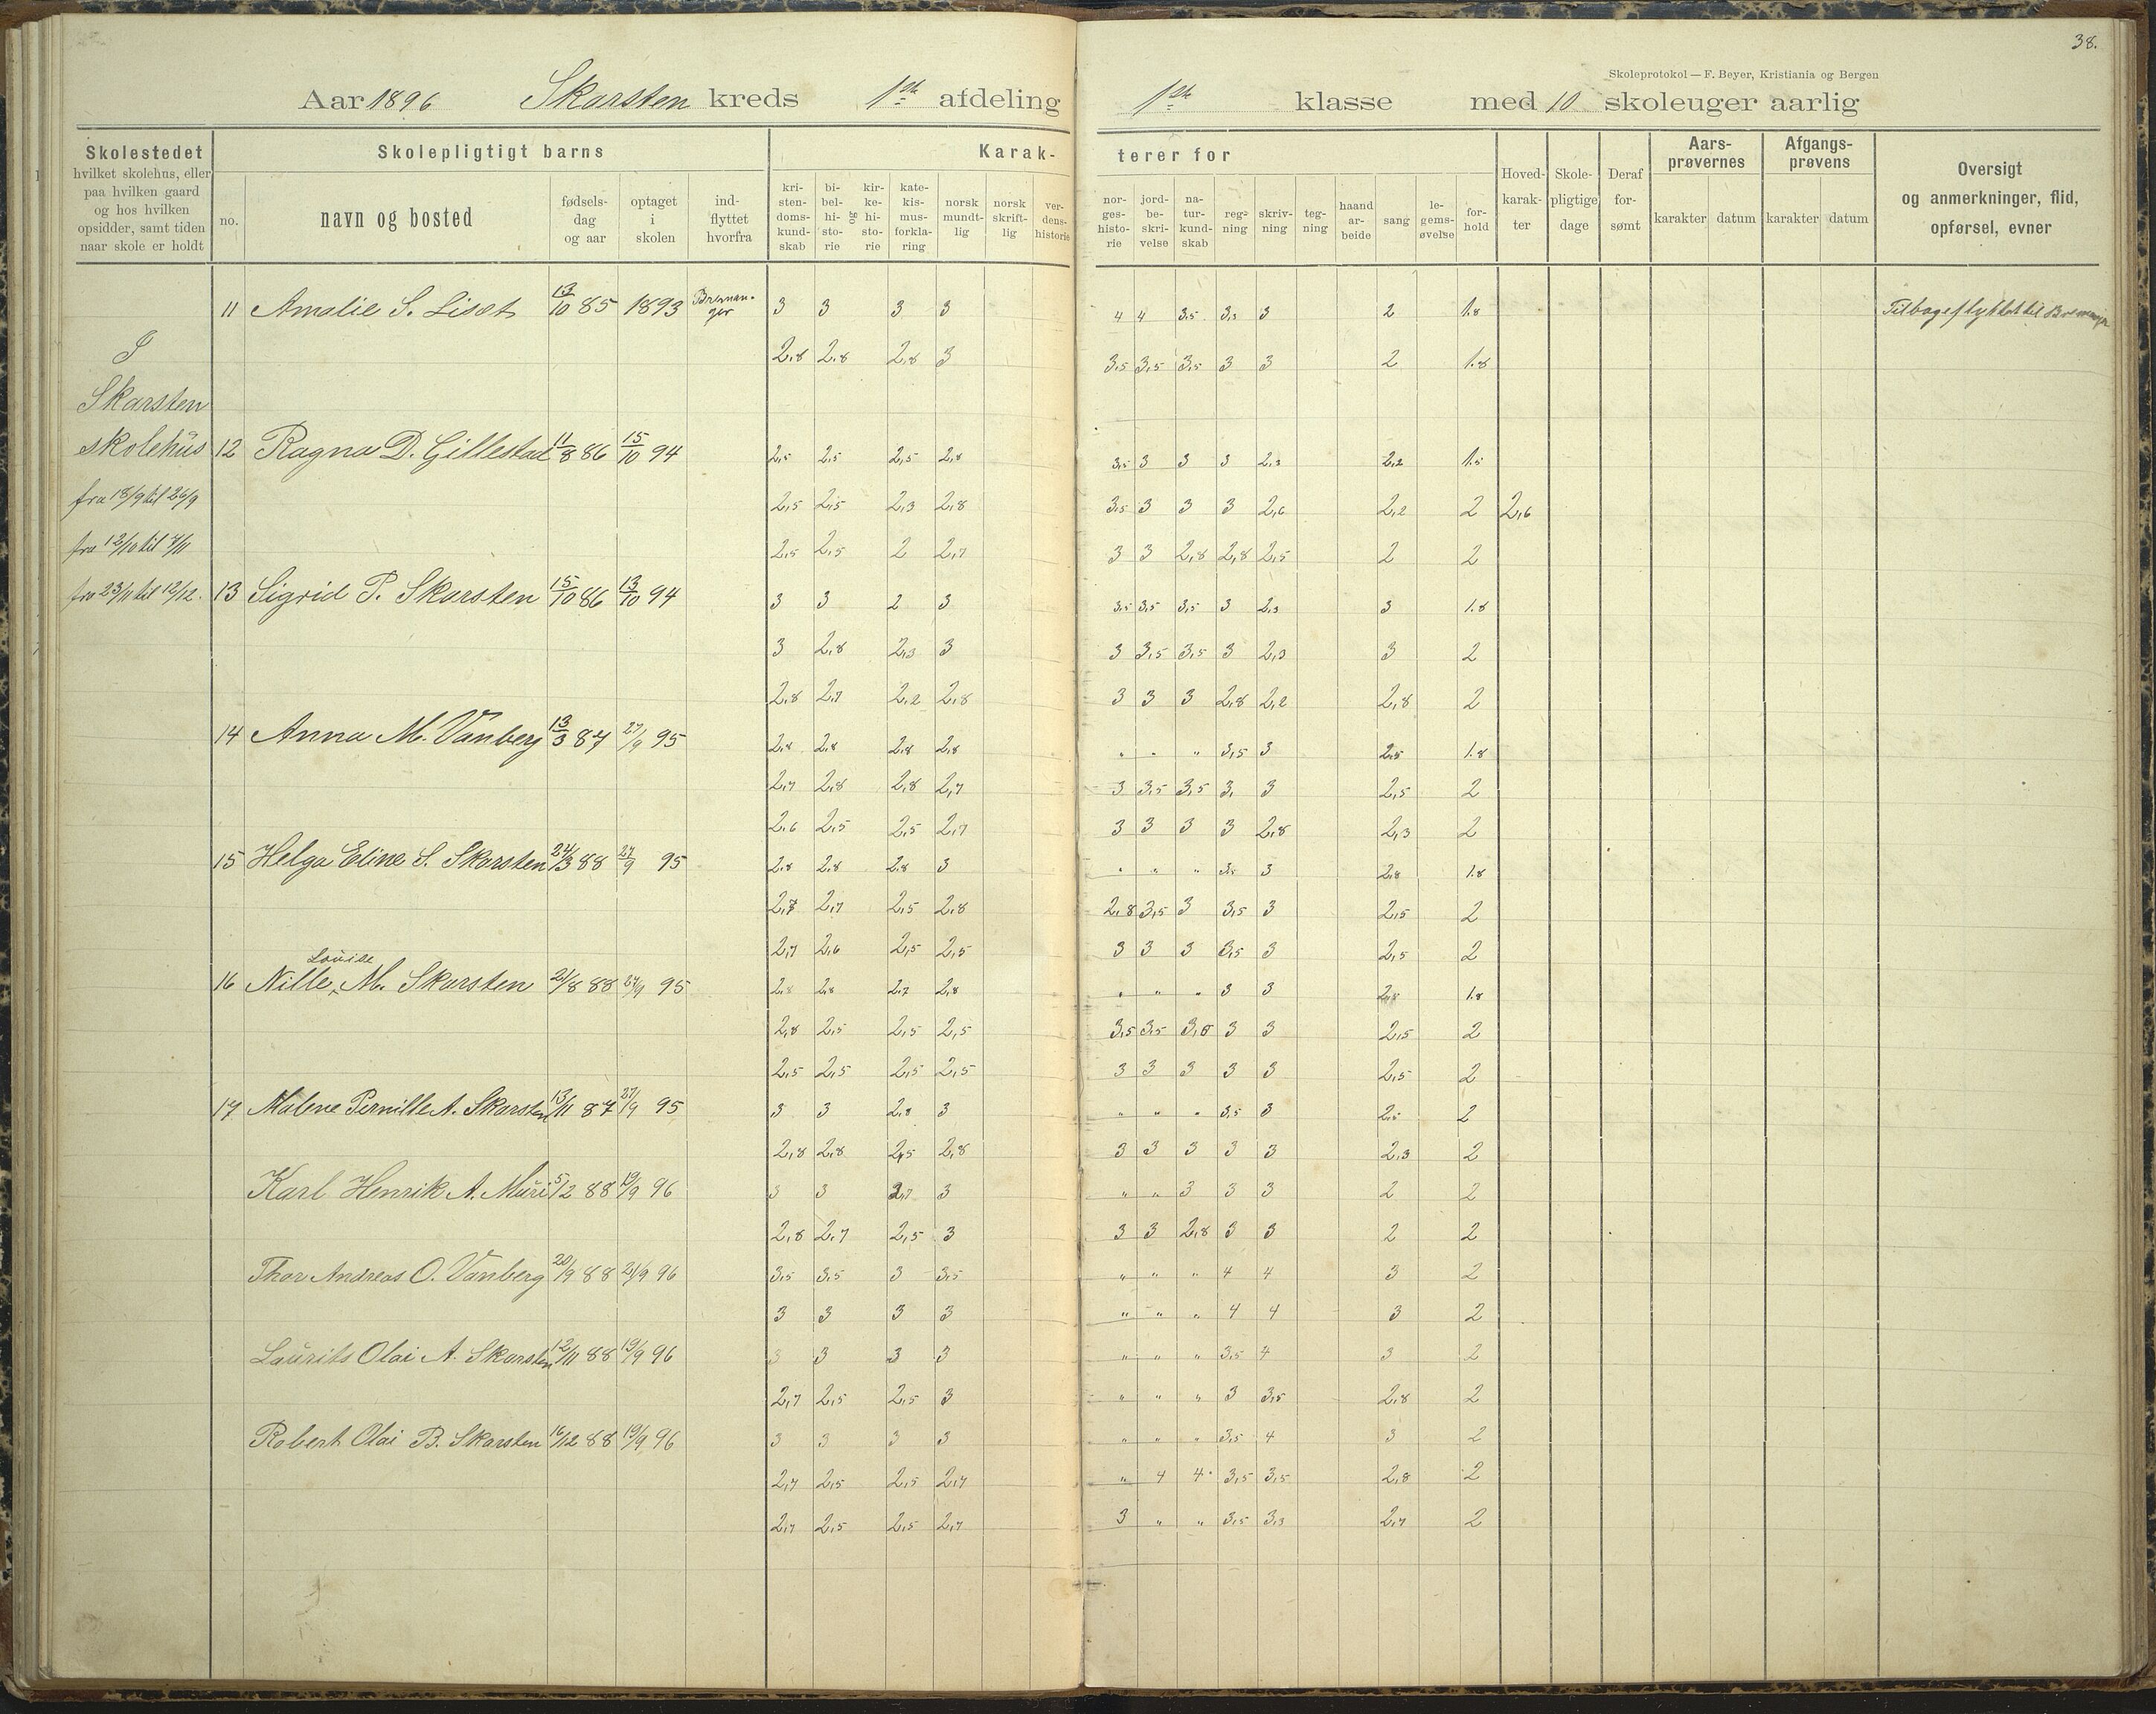 38.
Skoleprotokol — F. Beyer, Kristiania og Bergen
Aar 1896 Skarsten kreds 1ste afdeling 1ste klasse med 10 skoleuger aarlig
Skolestedet
hvilket skolehus, eller
paa hvilken gaard
og hos hvilken
opsidder, samt tiden
naar skole er holdt
Skolepligtigt barns
no.
navn og bosted
fødsels-
dag
og aar
optaget
i
skolen
ind-
flyttet
hvorfra
Karak-
kri-
sten-
doms-
kund-
skab
bi-
bel-
hi-
sto-
rie
og
kir-
ke-
hi-
sto-
rie
kate-
kis-
mus-
forkla-
ring
norsk
mundt-
lig
norsk
skrift-
lig
ver-
dens-
historie
terer for
nor-
ges-
histo-
rie
jord-
be-
skri-
velse
na-
tur-
kund-
skab
reg-
ning
skriv-
ning
teg-
ning
haand
ar-
beide
sang
le-
gems-
øvelse
for-
hold
Hoved-
karak-
ter
Skole-
pligtige
dage
Deraf
for-
sømt
Aars-
prøvernes
karakter datum
Afgangs-
prøvens
karakter datum
Oversigt
og anmerkninger, flid,
opførsel, evner
11 Amalie S. Liset 13/10 85 1893 Breman-
ger 3 3 3 3 4 4 3,5 3,3 3 2 1.8 Tilbageflyttet til Bremanger
I 2,8 2,8 2,8 3 3,5 3,5 3,5 3 3 2 1.8
Skarsten
skolehus 12 Ragna D. Gillestad 11/8 86 15/10 94 2,5 2,5 2,5 2,8 3,5 3 3 3 2,3 2,2 1.5
fra 18/9 til 26/9 2,5 2,5 2,3 2,8 3,5 3 3 3 2,6 2,2 2 2,6
fra 12/10 til 7/11 2,5 2,5 2 2,7 3 3 2,8 2,8 2,5 2 2
fra 23/11 til 12/12. 13 Sigrid P. Skarsten 15/10 86 13/10 94 3 3 2 3 3,5 3,5 3,5 3 2,3 3 1.8
3 2,8 2,3 3 3 3,5 3,5 3 2,3 3 2
2,8 2,7 2,2 2,8 3 3 3 2,8 2,2 2,8 2
14 Anna M. Vanberg 13/3 87 27/9 95 2,8 2,8 2,8 2,8 " " " 3,5 3 2,5 1.8
2,7 2,8 2,8 2,7 3 3,5 3,5 3, 3 2,5 2
2,6 2,5 2,5 2,7 3 3 3 3 2,8 2,3 2
15 Helga Eline S. Skarsten 24/3 88 27/9 95 2,8 2,8 2,8 3 " " " 3,5 3 2,8 1.8
2,7 2,7 2,5 2,8 2,8 3,5 3 3,5 3 2,5 2
2,7 2,6 2,5 2,5 3 3 3 3,5 3 2,5 2
Louise
16 Nille M. Skarsten 21/8 88 27/9 95 2,8 2,8 2,7 2,8 " " " 3 3 2,8 1.8
2,8 2,5 2,5 2,5 3,5 3,5 3,5 3 3 2,5 2
2,5 2,5 2,5 2,5 3 3 3 3 3 2,5 2
17 Malene Pernille A. Skarsten 13/11 87 27/9 95 3 3 2,8 3 " " " 3,5 3 2,5 2
2,8 2,8 2,5 2,8 3 3 3 3 3 2,3 2
Karl Henrik A. Muri 5/2 88 19/9 96 3 3 2,7 3 " " 3 3 3 2 2
2,8 2,7 2,5 3 3 3 2,8 3 3 2 2
Thor Andreas O. Vanberg 20/9 88 21/9 96 3,5 3,5 3 3,5 " " " 4 4 3 2
3 3 3 3 " " " 4 4 3 2
Laurits Olai A. Skarsten 12/11 88 19/9 96 3 3 3 3 " " " 3,5 4 3 2
2,7 2,5 2,5 3 " " " 3 3,5 2,8 2
Robert Olai B. Skarsten 16/12 88 19/9 96 3 3 3 3 " " " 3,5 4 3 2
2,7 2,5 2,5 2,7 " 4 4 3,5 3,5 2,8 2
2,7 2,5 2,5 2,7 3 " " 3,5 3,3 2,7 2